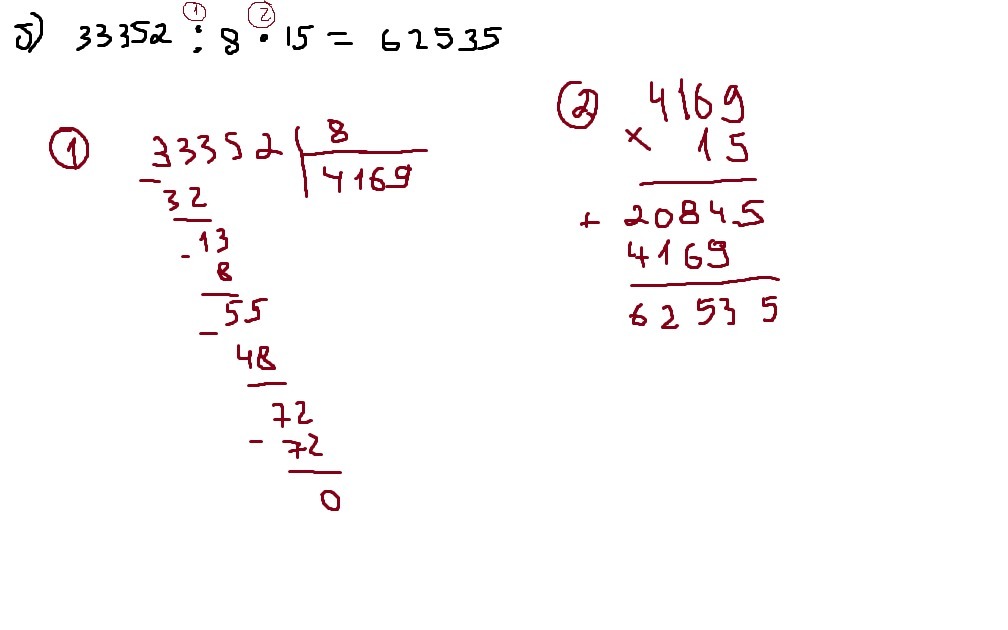 5) 33352 : 8 · 15 = 62535
① ②
① 33352 | 8
4169
- 32
- 13
8
- 55
48
- 72
72
0
② 4169
× 15
+ 20845
4169
62535